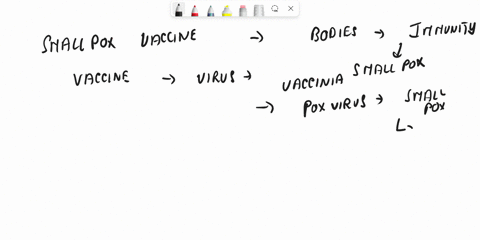 SMALL POX VACCINE → BODIES → IMMUNITY
↓
VACCINE → VIRUS → VACCINIA SMALL POX
→ POX VIRUS → SMALL POX
L